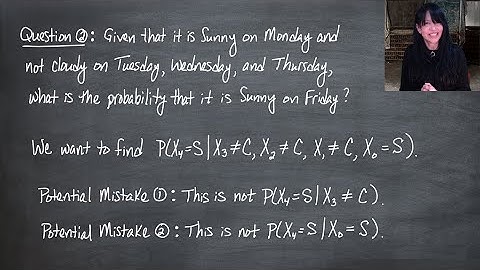 Question ②: Given that it is Sunny on Monday and
not cloudy on Tuesday, Wednesday, and Thursday,
what is the probability that it is Sunny on Friday?
We want to find P(X₄=S | X₃≠C, X₂≠C, X₁≠C, X₀=S).
Potential Mistake ①: This is not P(X₄=S | X₃≠C).
Potential Mistake ②: This is not P(X₄=S | X₀=S).